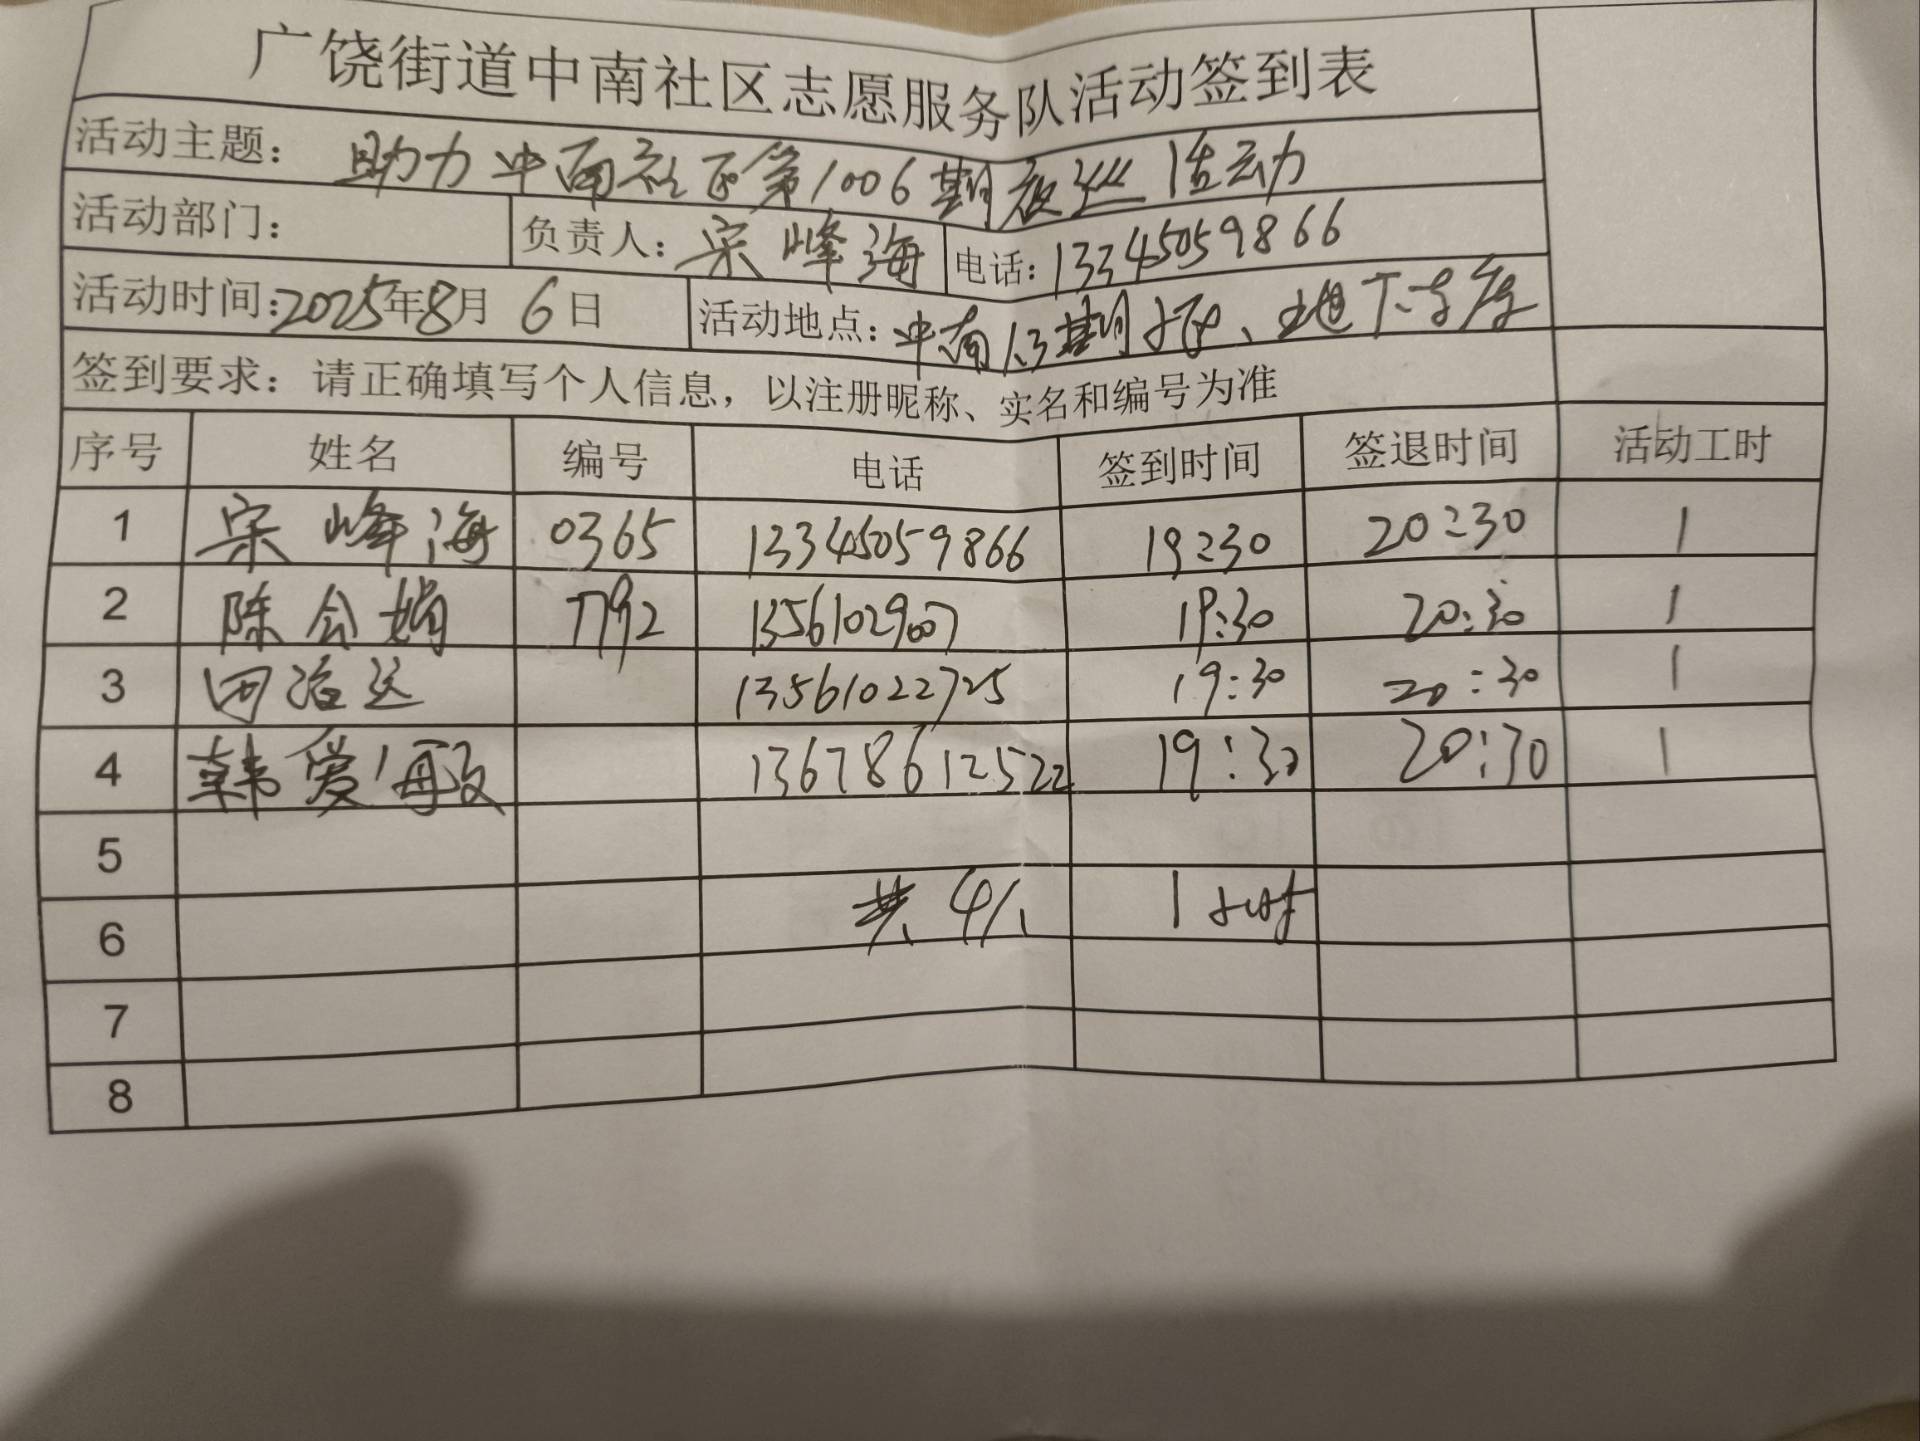 广饶街道中南社区志愿服务队活动签到表
活动主题： 助力中南社区第1006期夜巡活动
活动部门： 负责人：宋峰海 电话：13345059866
活动时间：2025年8月6日 活动地点：中南1.3期小区、地下车库
签到要求：请正确填写个人信息，以注册昵称、实名和编号为准
序号 姓名 编号 电话 签到时间 签退时间 活动工时
1 宋峰海 0365 13345059866 19:30 20:30 1
2 陈会娟 7792 19:30 20:30 1
3 田治 13561022725 19:30 20:30 1
4 韩爱海 13678612522 19:30 20:30 1
5
6 共4人 1小时
7
8